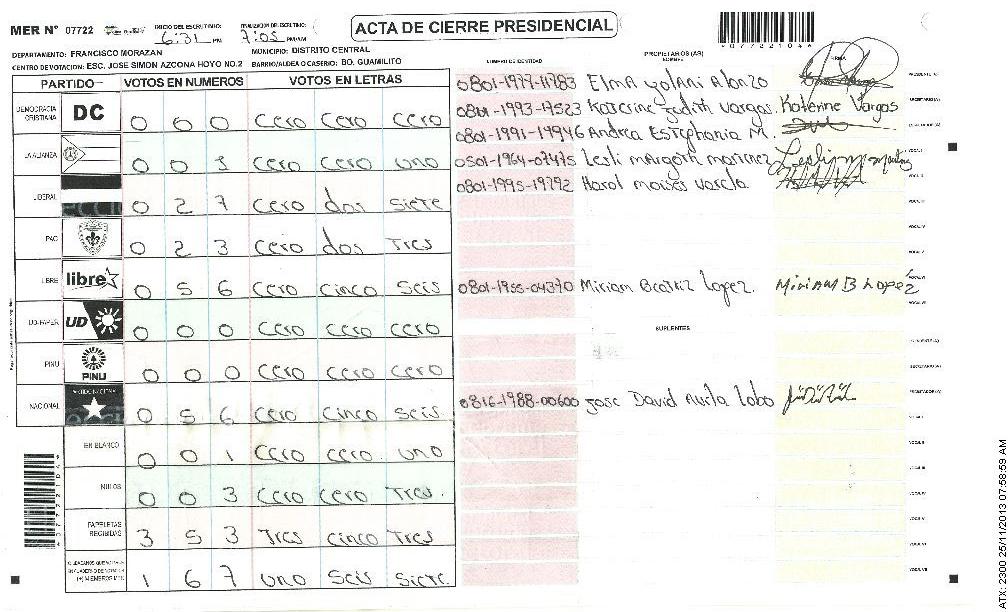 MER N° 07722 INICIO DEL ESCRUTINIO: 6:31 PM FINALIZACION DEL ESCRUTINIO: 7:05 PM/AM
ACTA DE CIERRE PRESIDENCIAL
077221046
DEPARTAMENTO: FRANCISCO MORAZAN MUNICIPIO: DISTRITO CENTRAL
CENTRO DE VOTACION: ESC. JOSE SIMON AZCONA HOYO NO.2 BARRIO/ALDEA O CASERIO: BO. GUAMILITO
PARTIDO VOTOS EN NUMEROS VOTOS EN LETRAS
DEMOCRACIA CRISTIANA DC 0 0 0 cero cero cero
LA ALIANZA 0 0 1 cero cero uno
LIBERAL 0 27 cero dos siete
PAC 0 2 3 cero dos Tres
LIBRE libre 0 5 6 cero cinco seis
UD-FAPER UD 0 0 0 cero cero cero
PINU PINU 0 0 0 cero cero cero
NACIONAL 0 5 6 cero cinco seis
EN BLANCO 0 0 1 cero cero uno
NULOS 0 0 3 cero cero Tres.
PAPELETAS RECIBIDAS 3 5 3 Tres cinco Tres
1 6 7 uno seis siete.
NUMERO DE IDENTIDAD PROPIETARIOS (AS) NOMBRE FIRMA
0801-1977-11783 Elma Yolani Alonzo PRESIDENTE (A)
0801-1993-17523 Katerine Judith Vargas. Katerine Vargas SECRETARIO (A)
0801-1991-19946 Andrea Estephania M. ESCRUTADOR (A)
0501-1964-07475 Lesli Margoth Martinez VOCAL I
0801-1995-19792 Harol moises varela VOCAL II
VOCAL III
VOCAL IV
VOCAL V
0801-1955-04370 Miriam Beatriz Lopez. Miriam B Lopez VOCAL VI
VOCAL VII
SUPLENTES
PRESIDENTE (A)
SECRETARIO (A)
0816-1988-00600 Jose David Avila lobo ESCRUTADOR (A)
VOCAL I
VOCAL II
VOCAL III
VOCAL IV
VOCAL V
VOCAL VI
VOCAL VII
ATX: 2300 25/11/2013 07:58:59 AM